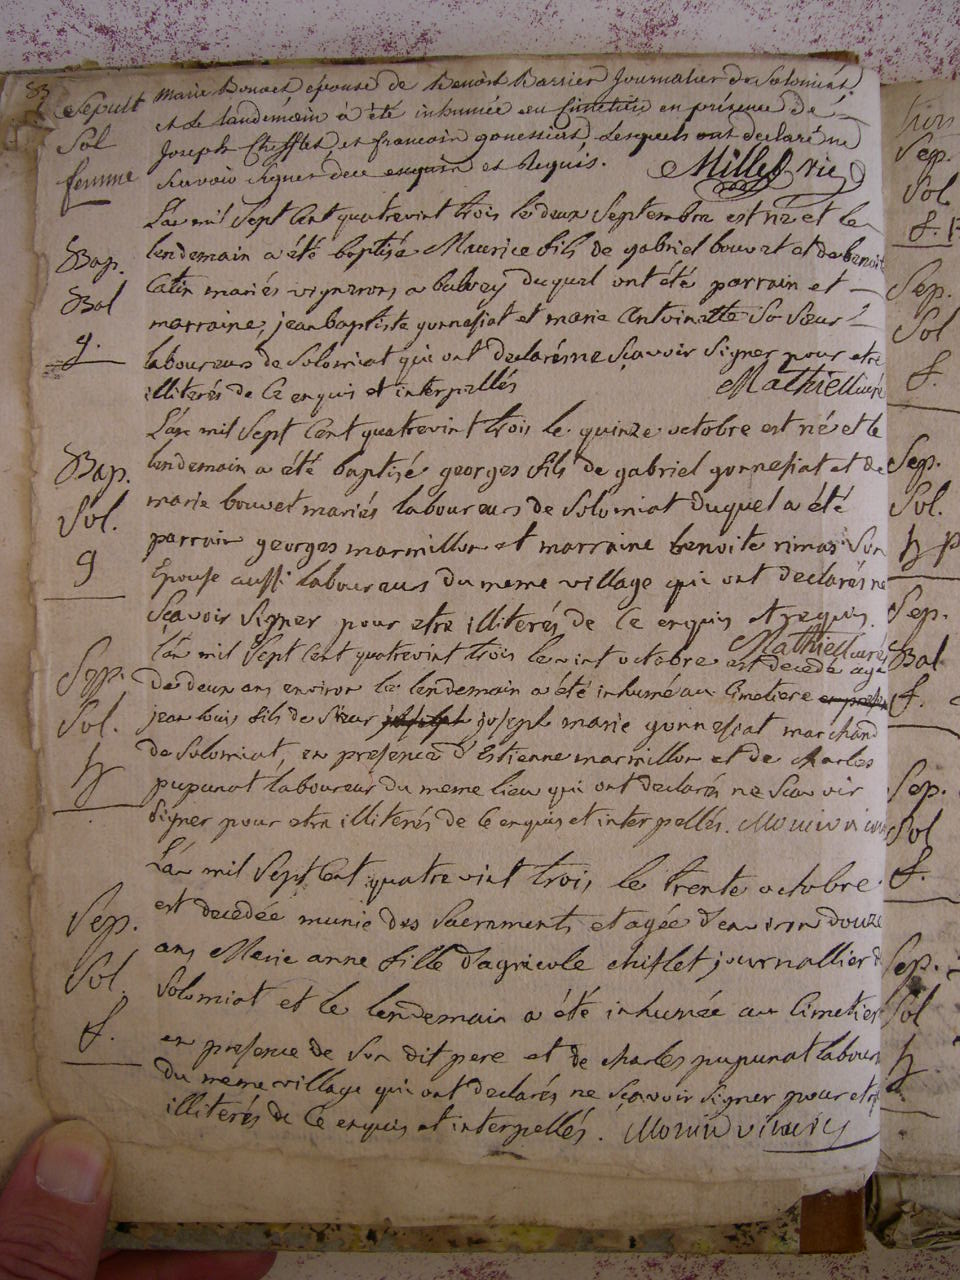 83
Sepult
Sol
femme
marie Bonaet epouse de Benoit Barrier Journalier de Solomiat
et Le landemain à été inhumée au Cimetiere en présence de
Joseph Chifflet et francois gonessiat Lesquels ont declaré ne
Scavoir Signer de ce enquis et Requis. Millet vic
Bap.
Bol
g.
L'an mil Sept Cent quatrevint trois le deux Septembre est né et le
lendemain a été baptisé Maurice fils de gabriel bouvet et de benoite
Catin mariés vignerons a bolozey duquel ont été parrain et
marraine, jean baptiste gonnesiat et marie Antoinette Sa Sœur
laboureurs de Solomiat qui ont declarés ne Sçavoir Signer pour etre
illiterés de Ce enquis et interpellés Mathieu curé
Bap.
Sol.
g
L'an mil Sept Cent quatrevint trois le quinze octobre est né et le
lendemain a été baptisé georges fils de gabriel gonnesiat et de
marie bouvet mariés laboureurs de Solomiat duquel a été
parrain georges marmillon et marraine benoite rimas Son
Epouse aussi laboureurs du meme village qui ont declarés ne
Scavoir Signer pour etre illiterés de Ce enquis et requis.
Mathieu curé
Sep.
Sol.
h
L'an mil Sept Cent quatrevint trois le vint octobre est decedé agé
de deux ans environ et le lendemain a été inhumé au Cimetiere
jean louis fils de Sieur joseph marie gonnesiat marchand
de Solomiat, en presence d'Estienne marmillon et de charles
pupunat laboureur du meme lieu qui ont declarés ne Scavoir
Signer pour etre illiterés de Ce enquis et interpellés.
Sep.
Sol.
f.
L'an mil Sept Cent quatrevint trois le trente octobre
est decedée munie des Sacrements et agée d'environ douze
ans Marie anne fille d'agricole chiflet journallier de
Solomiat et le lendemain a été inhumée au Cimetier
en presence de Son dit pere et de charles pupunat labour
du meme village qui ont declarés ne Sçavoir Signer pour etre
illiterés de Ce enquis et interpellés.
Sep.
Sol
f.
Sep.
Sol
f.
Sep.
Sol.
h
Sep.
Bal
f.
Sep.
Sol
f.
Sep.
Sol
h